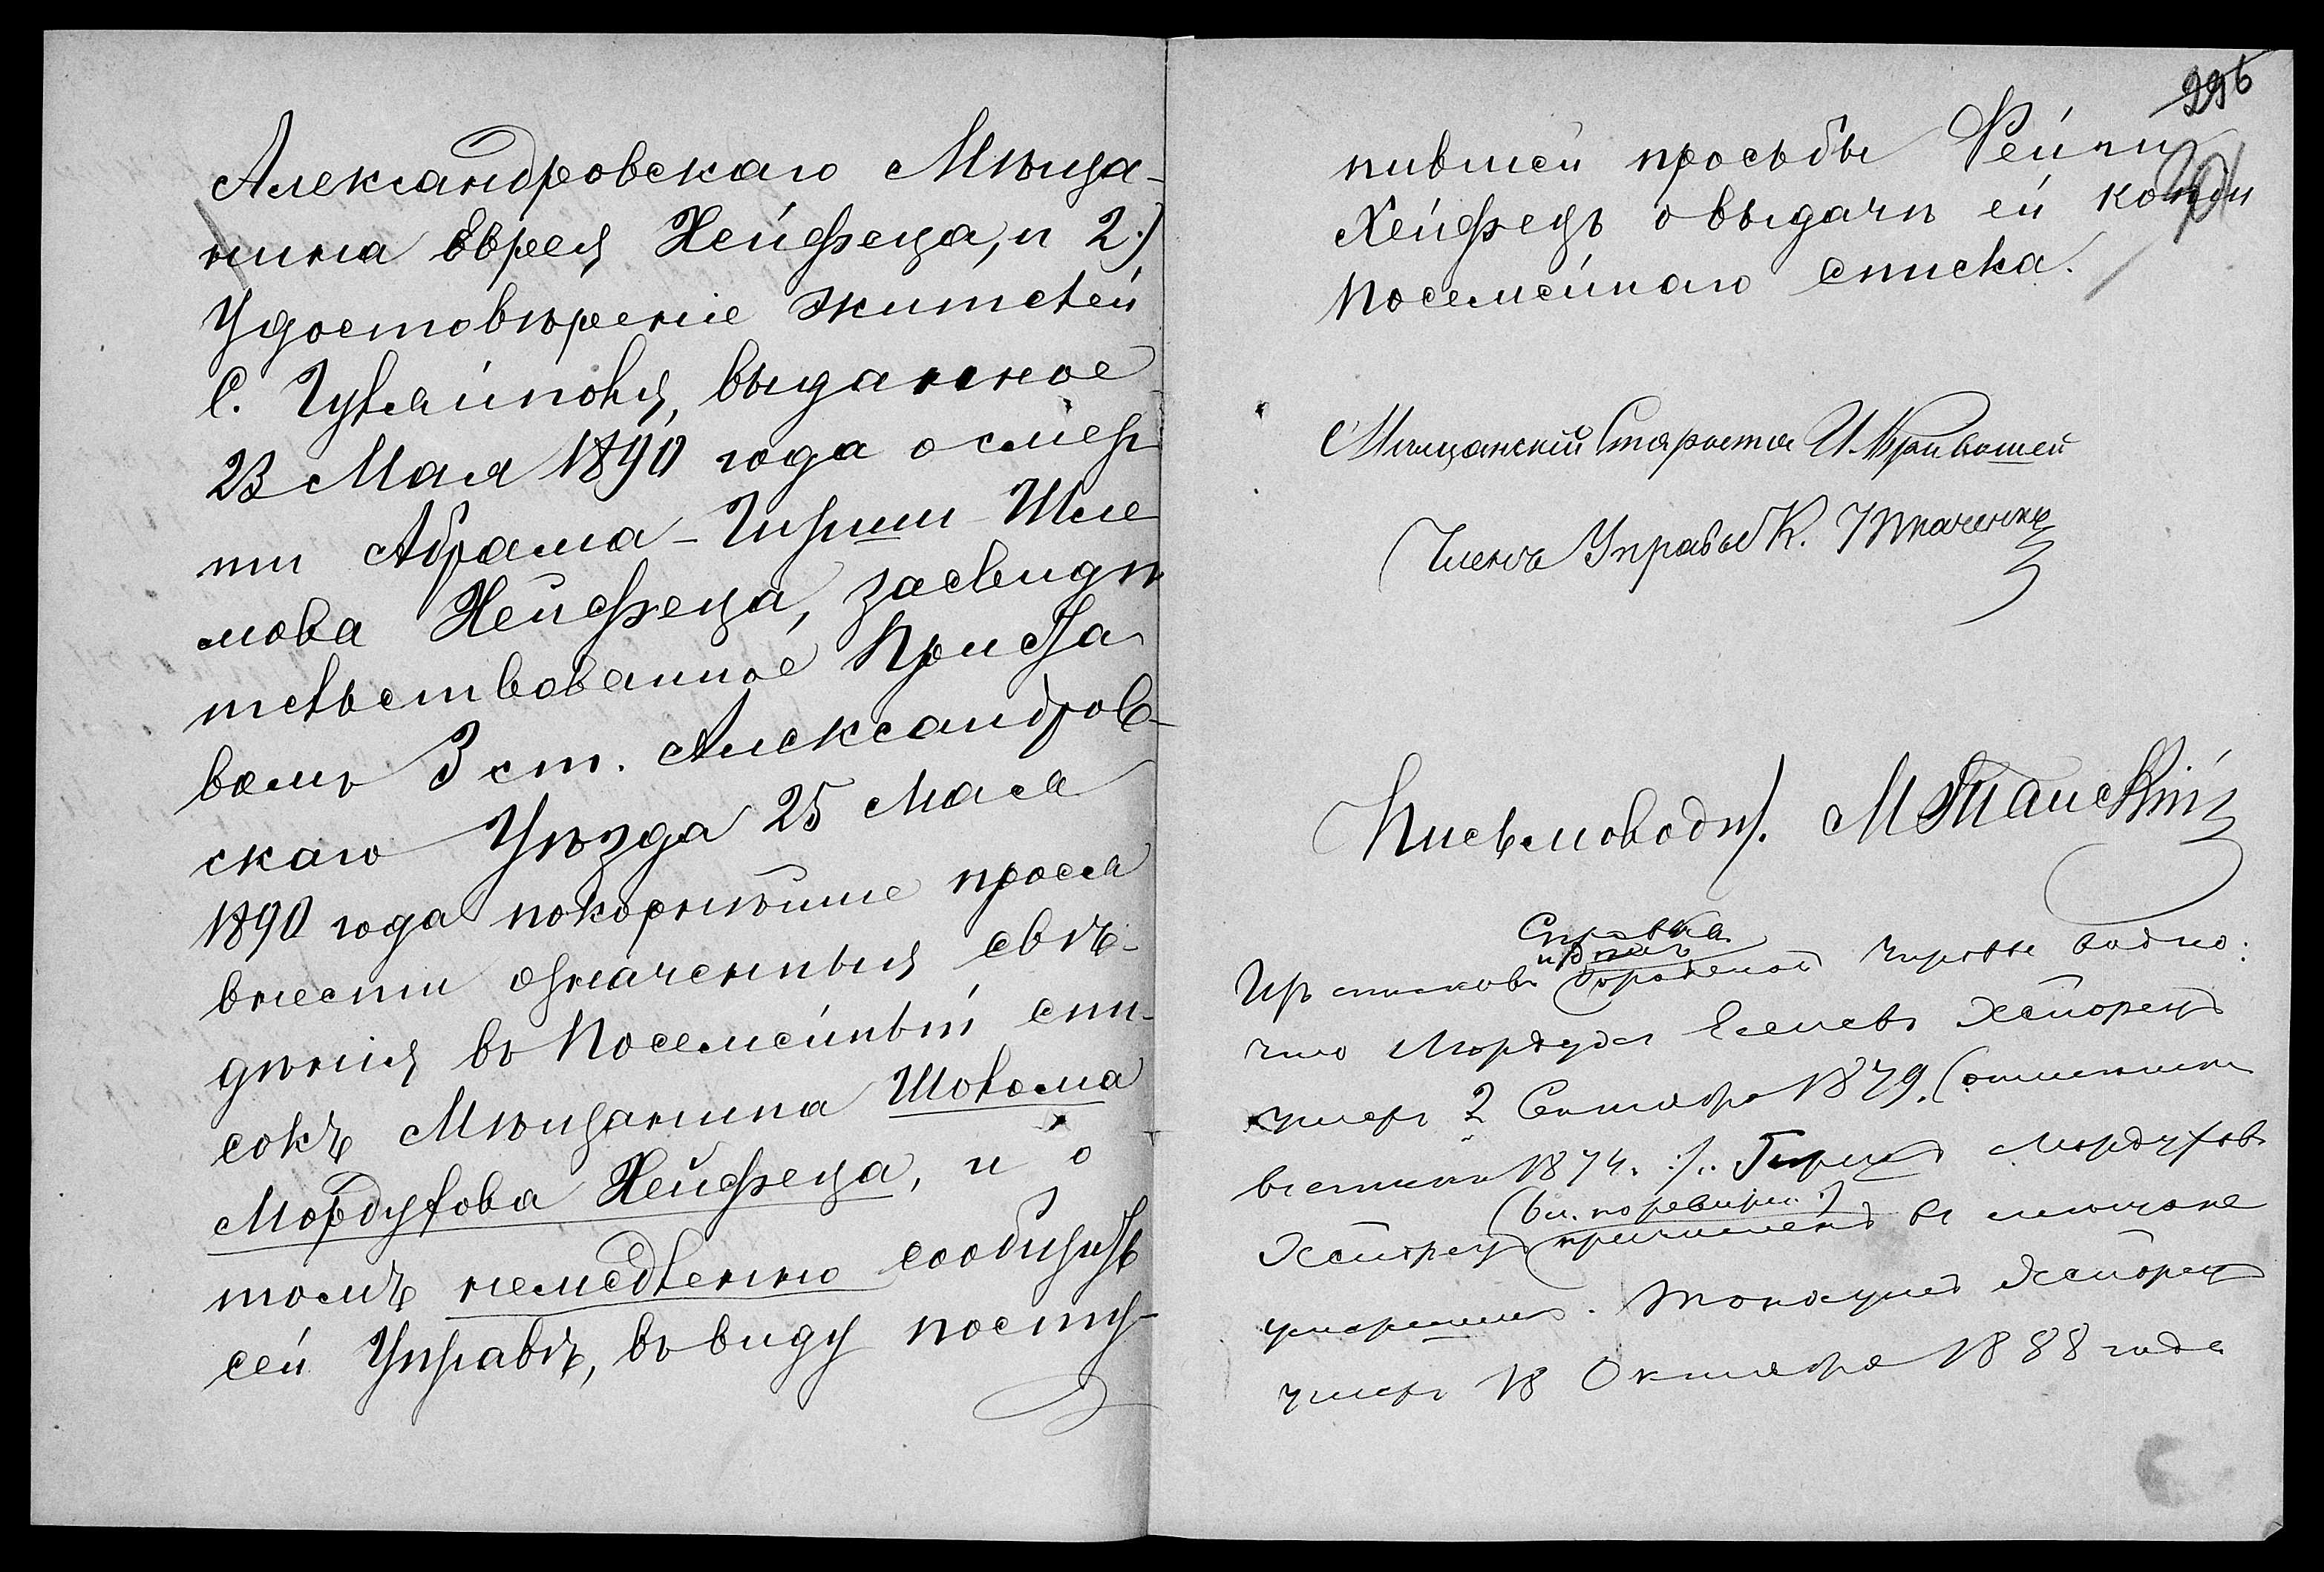 Александровскаго Мѣща-
нина Еврея Хейфеца, и 2.)
Удостовѣреніе жителей
С. Гуляйполя, выданное
23 Мая 1890 года о смер
ти Абрама-Гирши Шле
мова Хейфеца, засвидѣ
тельствованное Приста
вомъ 3 ст. Александров-
скаго Уѣзда 25 Мая
1890 года покорнѣйше прося
внести означенныя свѣ-
дѣнія въ Посемейный спи-
сокъ Мѣщанина Шолома
Мордухова Хейфеца, и о
томъ немедленно сообщить
сей Управѣ, въ виду посту-
296
пившей просьбы Рейзи
Хейфецъ о выдачѣ ей копіи
Посемейнаго списка.
Мѣщанскій Староста И.
Членъ Управы К. Ткаченко
Письмоводит.
Справка
Изъ списковъ Городской Управы видно:
что Мордухъ Хейфецъ
умеръ 2 Сентября 1879. (
1874. :/. Гирша Мордуховъ
(вм. по ревизіи :)
Хейфецъ причисленъ въ мѣщане
умершимъ. Хейфецъ
умеръ 18 Октября 1888 года